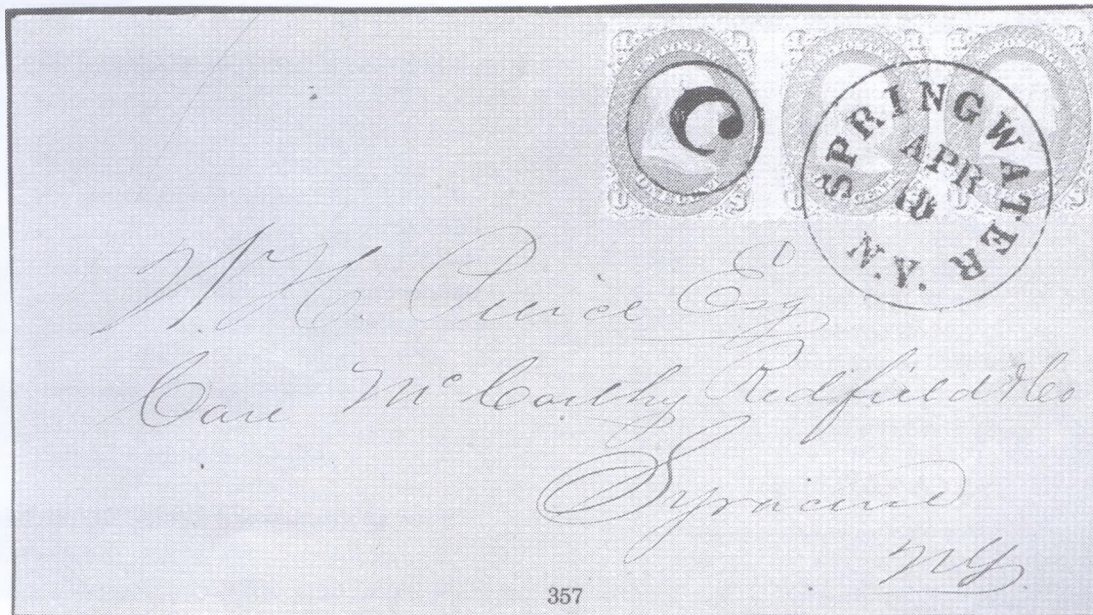 C
SPRINGWATER N.Y.
APR
18
W. H. Peirce Esq
Care McCarthy Redfield & Co
Syracuse
NY
357